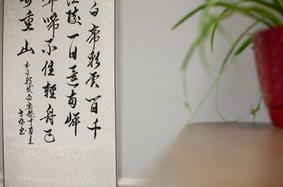 白帝彩雲間千
江陵一日還兩岸
聲啼不住輕舟已
重山